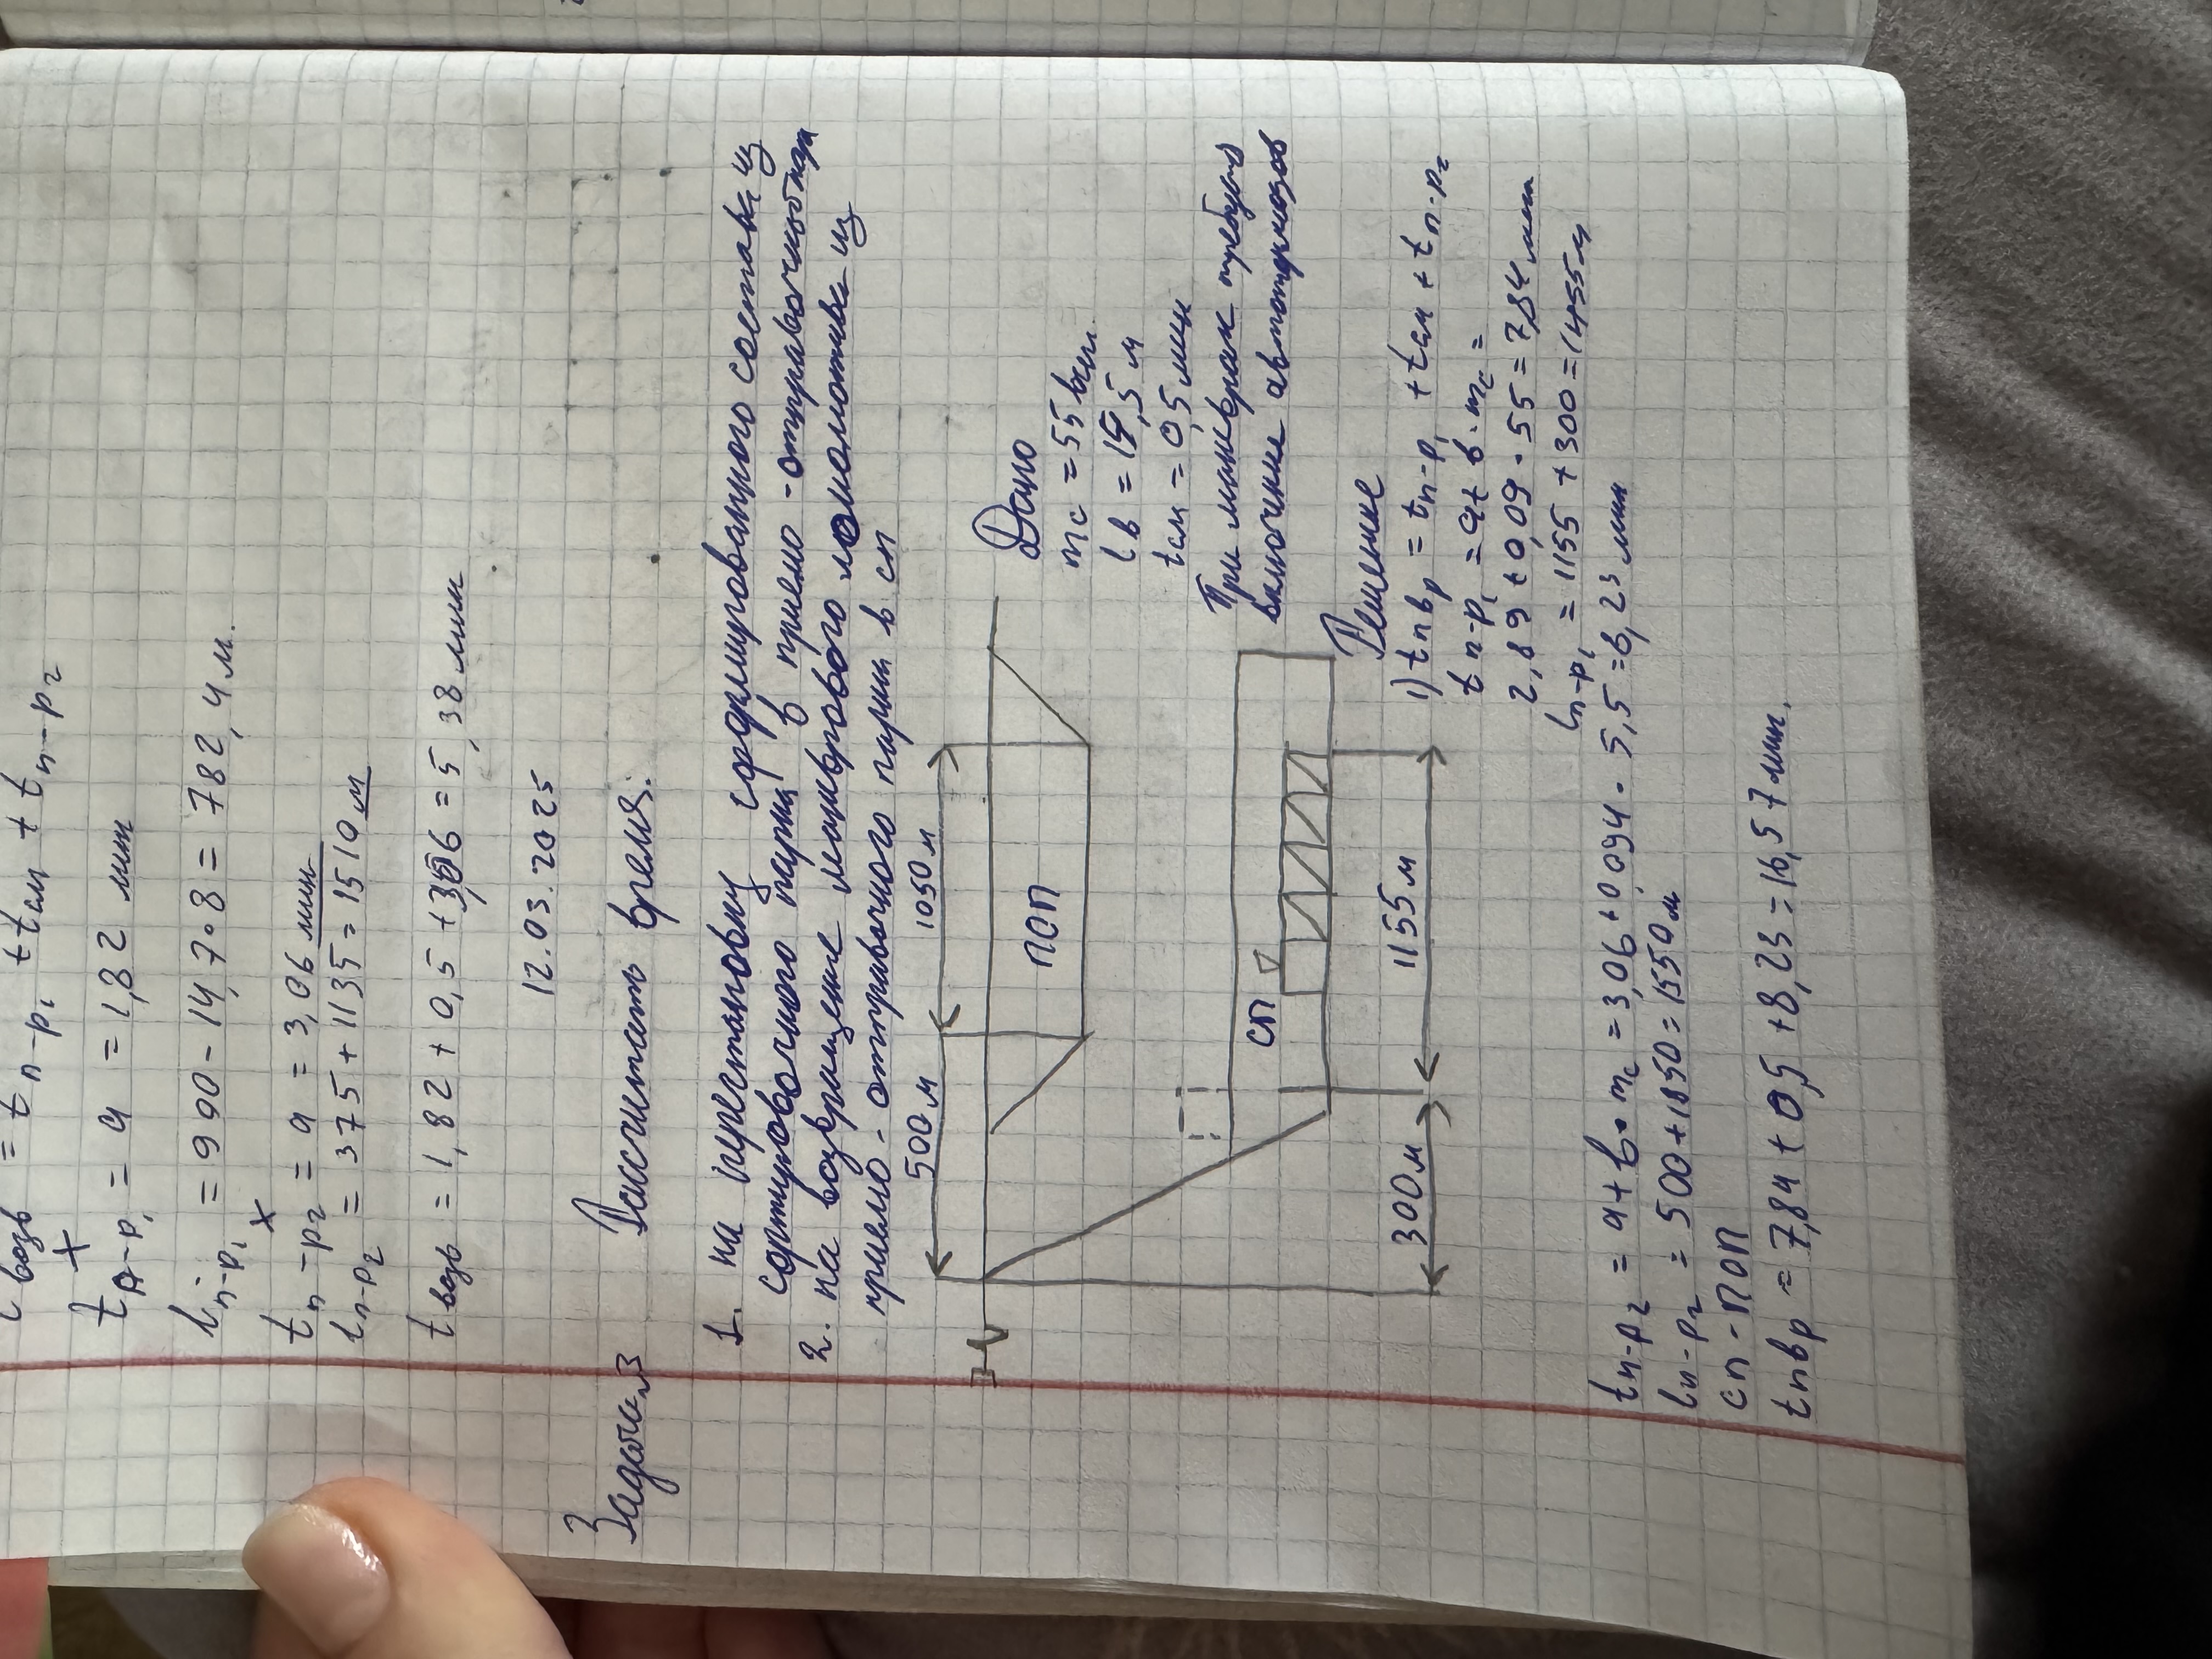 t возв = t п-р₁ + t см + t п-р₂
t п-р₁ = a = 1,82 мин
l п-р₁ = 990 - 14,7·8 = 782,4 м.
t п-р₂ = a = 3,06 мин
l п-р₂ = 375 + 1135 = 1510 м
t возв = 1,82 + 0,5 + 3,06 = 5,38 мин
12.03.2025
Задача 3 Рассчитать время:
1. на перестановку сформированного состава из
сортировочного парка в приемо-отправочный парк
2. на возвращение маневрового локомотива из
приемо-отправочного парка в сп
500 м 1050 м
ПОП
СП
300 м 1155 м
Дано
mс = 55 ваг.
lв = 15,5 м
tсм = 0,5 мин
При маневрах требуется
включение автотормозов
Решение
1) t пвр = t п-р₁ + t см + t п-р₂
t п-р₁ = a + в · mс =
2,89 + 0,09 · 55 = 7,84 мин
l п-р₁ = 1155 + 300 = 1455 м
t п-р₂ = a + в · mс = 3,06 + 0,094 · 5,5 = 8,23 мин
l п-р₂ = 500 + 1050 = 1550 м
СП - ПОП
t пвр = 7,84 + 0,5 + 8,23 = 16,57 мин.